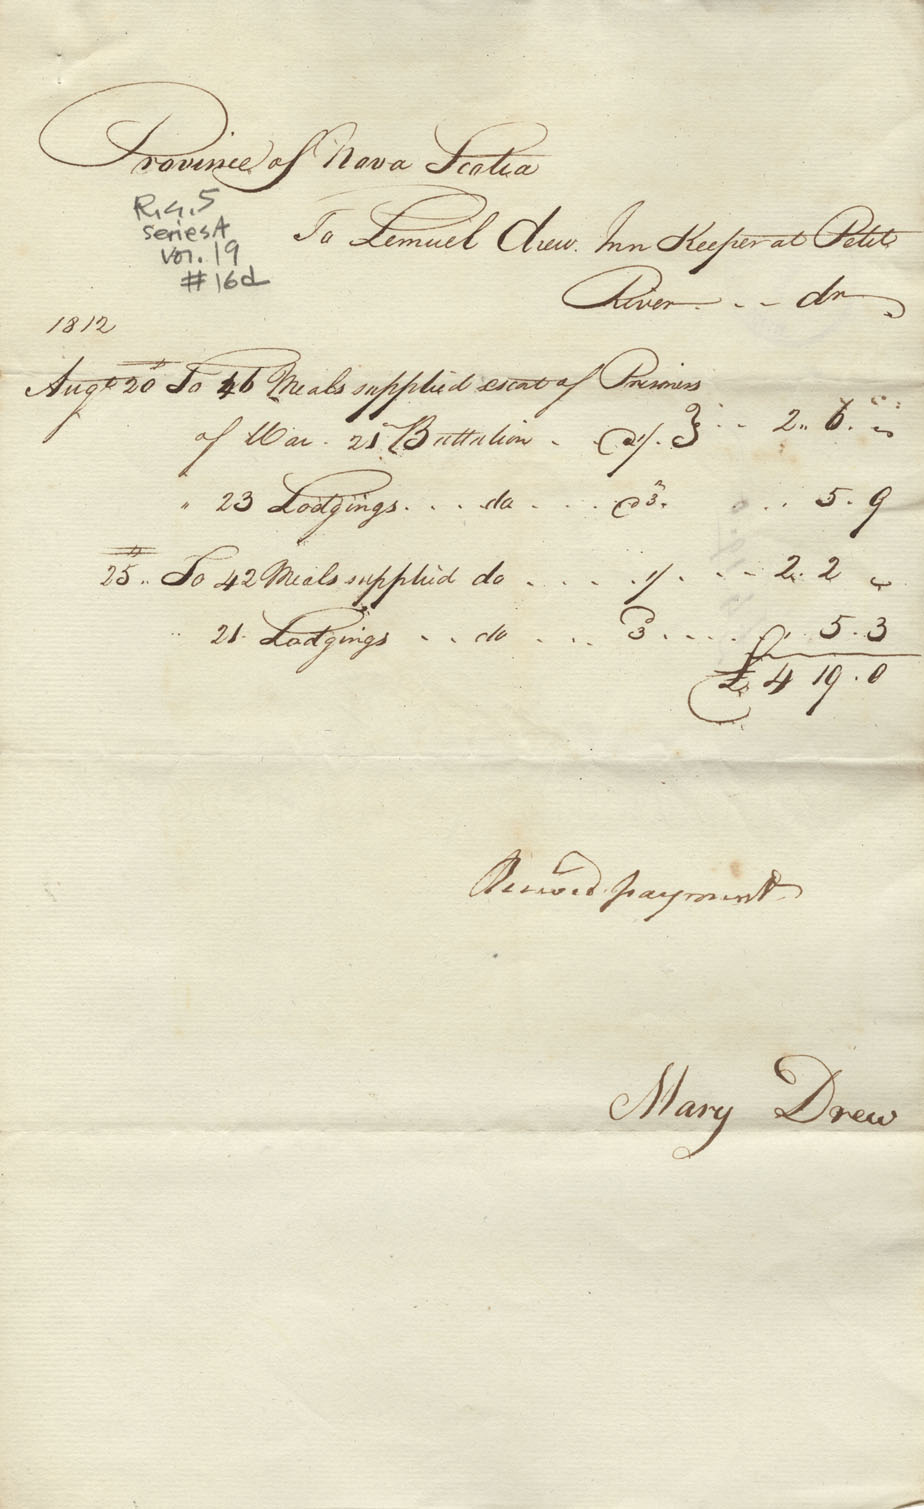 Province of Nova Scotia
R.G.5
Series A
Vol. 19
#16d
To Lemuel Drew. Inn Keeper at Petit
River - - - dr
1812
Augt 20th To 46 Meals supplied escort of Prisoners
of War. 21st Battalion - @ 1/. } - - 2 „ 6 . „
„ 23 Lodgings . . . do . . . . @ 3d. . . 5 . 9
25th „ To 42 Meals supplied do . . . . 1/ . . - - 2 . 2 „
„ 21 Lodgings - - do - . . . 3 . . . . „ 5 . 3
£ 4 19 . 0
Received payment
Mary Drew